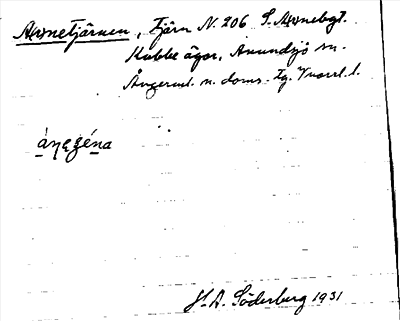 Avnetjärnen, Tjärn N. 206 S. Avnebgt.
Kubbe ägor, Anundsjö sn.
Ångerml. n. doms. tg. Vnorrl. l.
áŋɛʒéna
H. A. Söderberg 1931